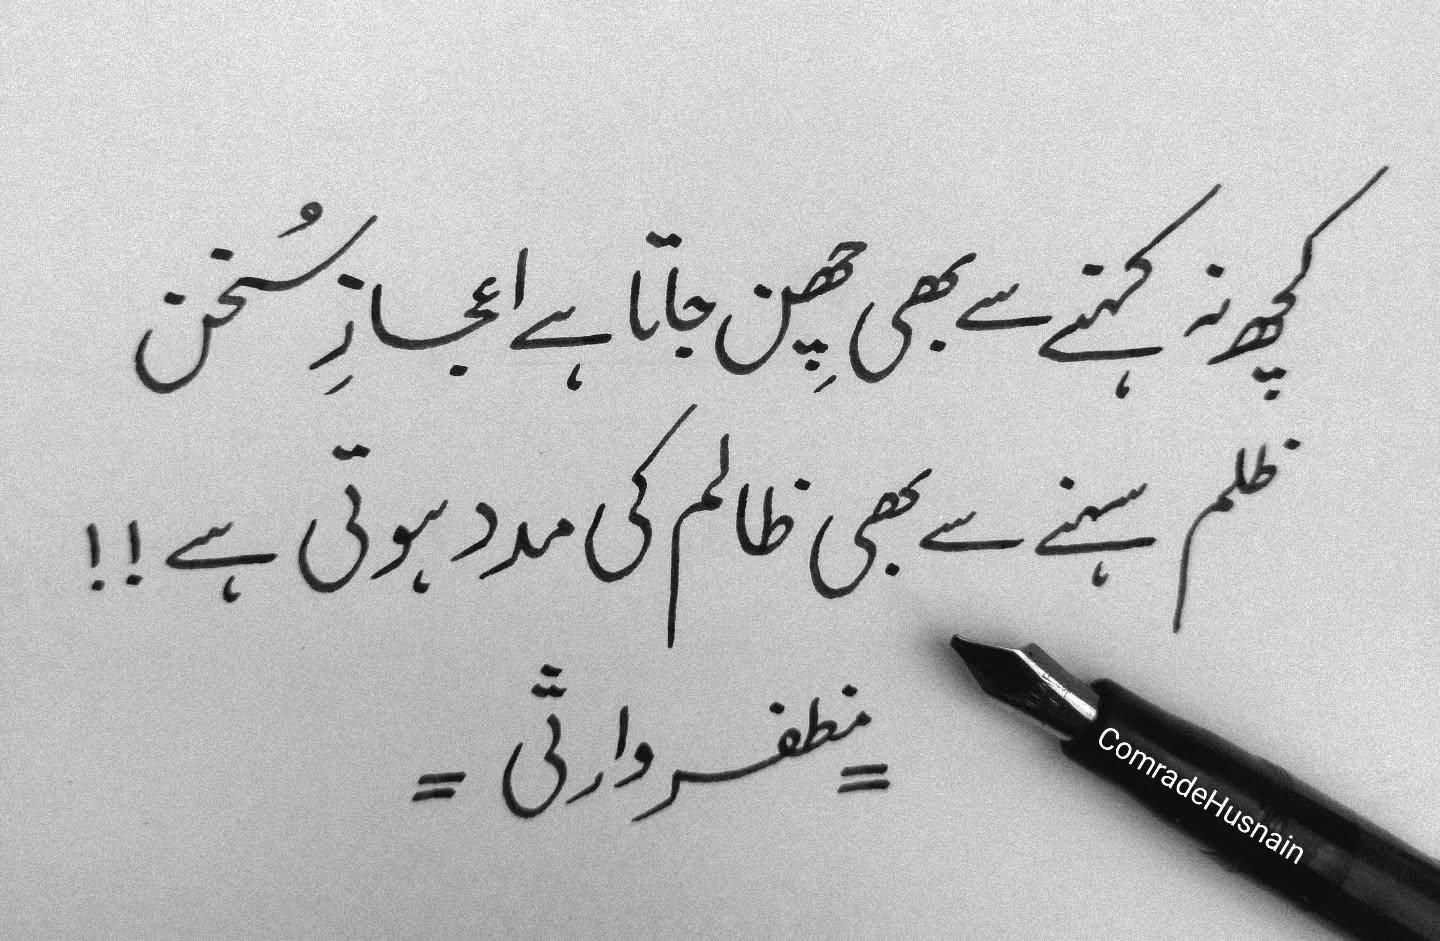 کچھ نہ کہنے سے بھی چھِن جاتا ہے اعجازِ سُخن
ظلم سہنے سے بھی ظالم کی مدد ہوتی ہے !!
= مظفر وارثی =
ComradeHusnain